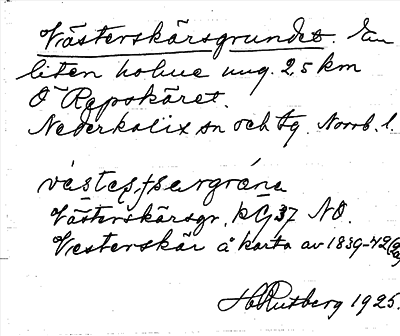 Västerskärsgrundet. En
liten holme ung. 2,5 km
O Repskäret.
Nederkalix sn och tg. Norrb. l.
Västerskärsgr. KG37 NO.
Vesterskär å karta av 1839-42
H Rutberg 1925.